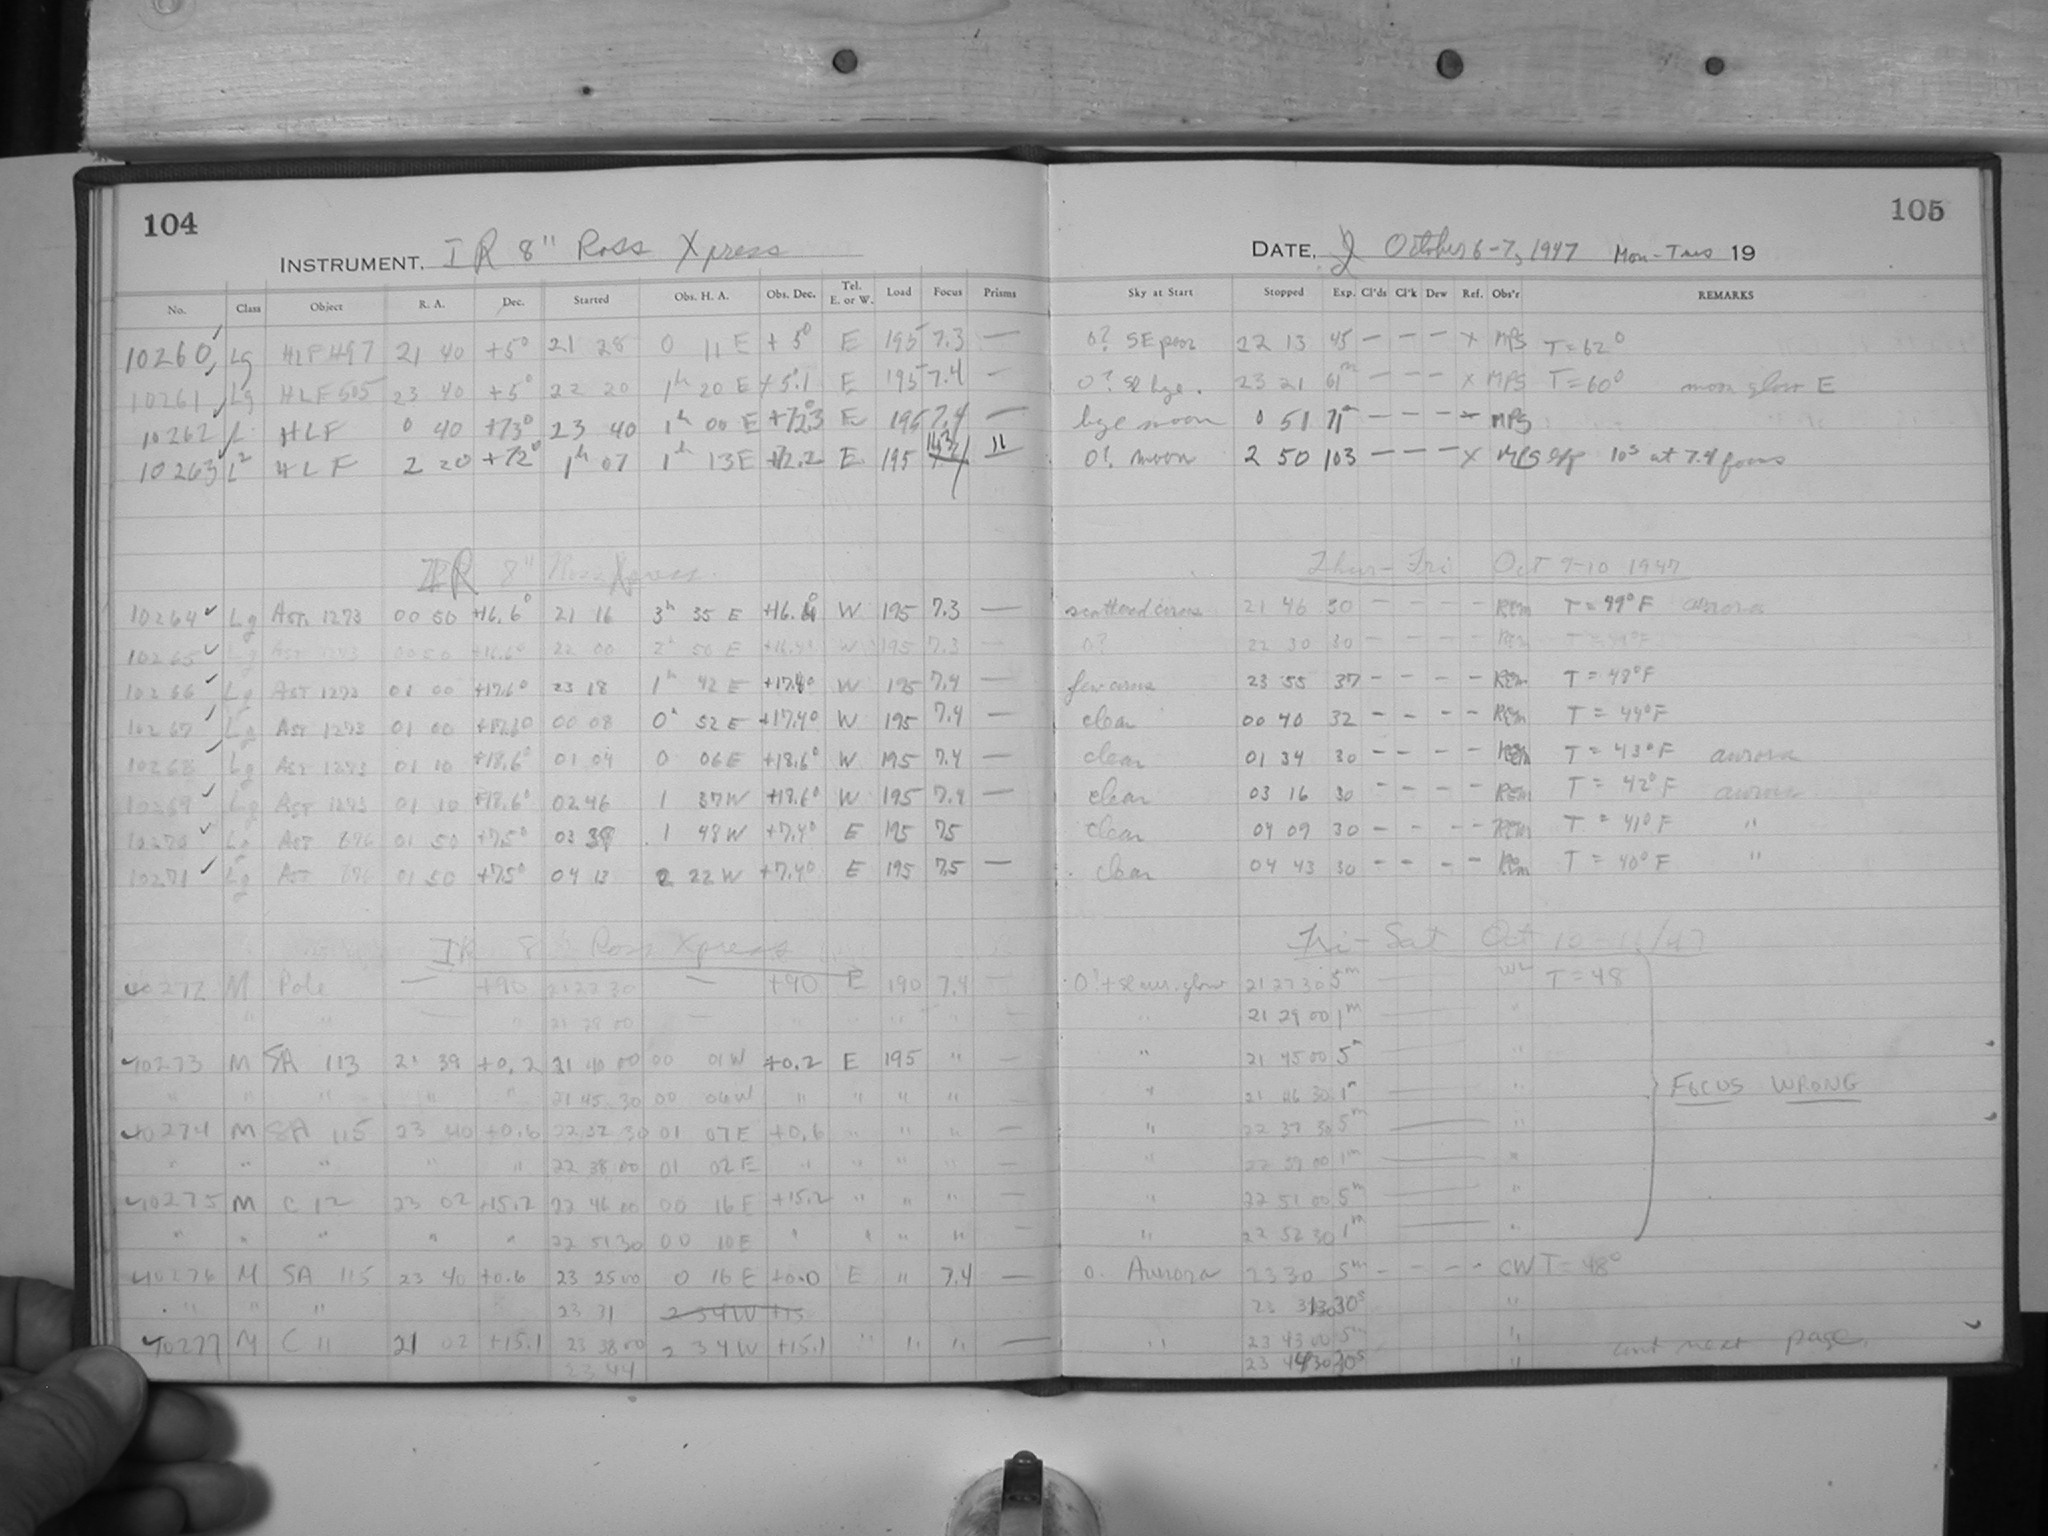 104
INSTRUMENT, IR 8" Ross Xpress
No. Class Object R. A. Dec. Started Obs. H. A. Obs. Dec. Tel. E. or W. Load Focus Prisms
10260 Lg HLF 497 21 40 +5° 21 28 0 11 E +5° E 195 7.3 —
10261 Lg HLF 505 23 40 +5° 22 20 1h 20 E +5.1 E 195 7.4 —
10262 L HLF 0 40 +73° 23 40 1h 00 E +72.3 E 195 7.4 —
10263 L2 HLF 2 20 +72° 1h 07 1h 13 E +72.2 E 195 "
IR 8" Ross Xpress
10264 Lg AST 1273 00 50 +16.6° 21 16 3h 35 E W 195 7.3 —
10265 Lg AST 1273 00 50 +16.6° 22 00 2h 50 E W 195 7.3 —
10266 Lg AST 1273 01 00 +17.6° 23 18 1h 42 E W 195 7.4 —
10267 Lg AST 1273 01 00 00 08 0h 52 E +17.4° W 195 7.4 —
10268 Lg AST 1273 01 10 +18.6° 01 04 0 06 E +18.6° W 195 7.4 —
10269 Lg AST 1273 01 10 +18.6° 02 46 1 37 W +18.6° W 195 7.4 —
10270 Lg AST 696 01 50 +7.5° 03 39 1 48 W +7.4° E 195 7.5
10271 Lg AST 696 01 50 +7.5° 04 13 2 22 W +7.4° E 195 7.5 —
IR 8" Ross Xpress
10272 M Pole — +90 21 22 30 — +90 E 190 7.4 —
" " " — " 21 28 00 — " " " " —
10273 M SA 113 21 39 +0.2 21 40 00 00 01 W +0.2 E 195 " —
" " " " " 21 45 30 00 06 W " " " " —
10274 M SA 115 23 40 +0.6 22 32 30 01 07 E +0.6 " " " —
" " " " " 22 38 00 01 02 E " " " " —
10275 M C 12 23 02 +15.2 22 46 00 00 16 E +15.2 " " " —
" " " " " 22 51 30 00 10 E " " " " —
10276 M SA 115 23 40 +0.6 23 25 00 0 16 E +0.0 E " 7.4 —
" " " 23 31 2 34 W +15
10277 M C 11 21 02 +15.1 23 38 00 2 34 W +15.1 " " " —
23 44
105
DATE, October 6-7, 1947 Mon-Tues 19
Sky at Start Stopped Exp. Cl'ds Cl'k Dew Ref. Obs'r REMARKS
0? SE poor 22 13 45 — — — x MPS T=62°
0? sl hze. 23 21 61m — — — x MPS T=60° moon glow E
hze moon 0 51 71m — — — x MPS
0? moon 2 50 103 — — — x MPS at 7.4 focus
Thur-Fri Oct 9-10 1947
scattered cirrus 21 46 30 — — — — REM aurora
0? 22 30 30 — — — — REM
few cirrus 23 55 37 — — — — REM T = 48°F
clear 00 40 32 — — — — REM T = 44°F
clear 01 34 30 — — — — REM T = 43°F aurora
clear 03 16 30 — — — — REM T = 42°F aurora
clear 04 09 30 — — — — REM T = 41°F "
clear 04 43 30 — — — — REM T = 40°F "
Fri-Sat Oct 10-11/47
0? + sl aur. glow 21 27 30 5m T=48
" 21 29 00 1m "
" 21 45 00 5m "
" 21 46 30 1m "
FOCUS WRONG
" 22 37 30 5m "
" 22 39 00 1m "
" 22 51 00 5m "
" 22 52 30 1m "
0. Aurora 23 30 5m — — — — CW T=48°
23 31 30 30s "
" 23 43 00 5m " cont next page.
23 44 30 30s "